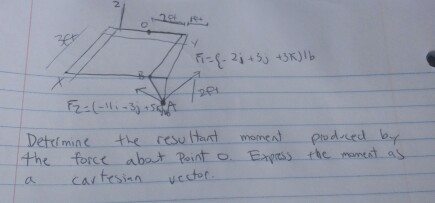 Z
2ft 1ft
O
Y
3ft
F1={-2j+5j+3k}lb
B
X
2ft
A
F2=(-11i-3j+5k)lb
Determine the resultant moment produced by
the force about Point O. Express the moment as
a cartesian vector.